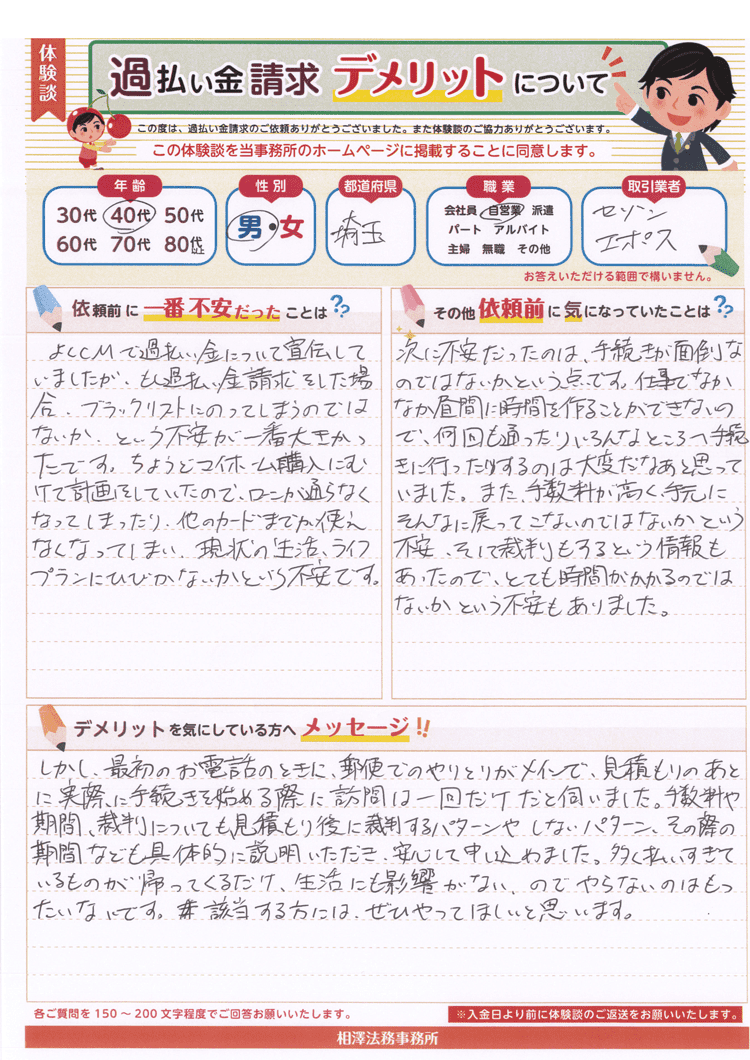 体験談
過払い金請求 デメリットについて
この度は、過払い金請求のご依頼ありがとうございました。また体験談のご協力ありがとうございます。
この体験談を当事務所のホームページに掲載することに同意します。
年齢
30代 40代 50代
60代 70代 80代以上
性別
男・女
都道府県
埼玉
職業
会社員 自営業 派遣
パート アルバイト
主婦 無職 その他
取引業者
セゾン
エポス
お答えいただける範囲で構いません。
依頼前に一番不安だったことは??
よくCMで過払い金について宣伝して
いましたが、もし過払い金請求をした場
合、ブラックリストにのってしまうのでは
ないか、という不安が一番大きかっ
たです。ちょうどマイホーム購入にむ
けて計画をしていたので、ローンが通らなく
なってしまったり、他のカードまでが使え
なくなってしまい、現状の生活、ライフ
プランにひびかないかという不安です。
その他依頼前に気になっていたことは??
次に不安だったのは、手続きが面倒な
のではないかという点です。仕事でなか
なか昼間に時間を作ることができないの
で、何回も通ったりいろんなところへ手続
きに行ったりするのは大変だなあと思って
いました。また、手数料が高く、手元に
そんなに戻ってこないのではないかという
不安、そして裁判もするという情報も
あったので、とても時間がかかるのでは
ないかという不安もありました。
デメリットを気にしている方へメッセージ!!
しかし、最初のお電話のときに、郵便でのやりとりがメインで、見積もりのあと
に実際に手続きを始める際に訪問は一回だけだと伺いました。手数料や
期間、裁判についても見積もり後に裁判するパターンやしないパターン、その際の
期間なども具体的に説明いただき、安心して申し込めました。多く払いすぎて
いるものが帰ってくるだけ、生活にも影響がない、のでやらないのはもっ
たいないです。該当する方には、ぜひやってほしいと思います。
各ご質問を150～200文字程度でご回答お願いいたします。
※入金日より前に体験談のご返送をお願いいたします。
相澤法務事務所